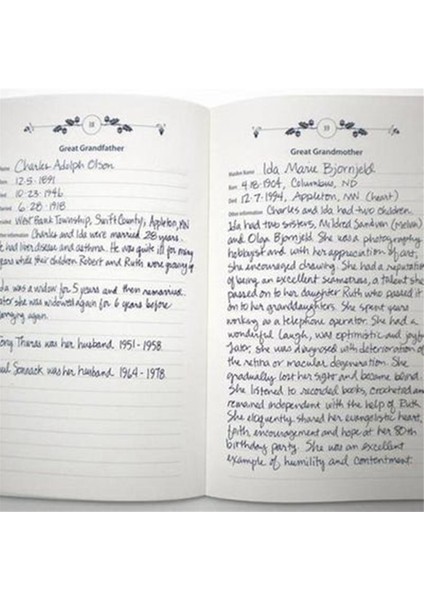 38
Great Grandfather
Name Charles Adolph Olson
Born 12-5-1891
Died 10-23-1946
Married 6-28-1918
West Bank Township, Swift County, Appleton, MN
Other information Charles and Ida were married 28 years.
He had liver disease and asthma. He was quite ill for many
years while their children Robert and Ruth were growing up
Ida was a widow for 5 years and then remarried.
Later she was widowed again for 6 years before
again.
Tony Thomas was her husband 1951-1958.
Paul was her husband 1964-1978
39
Great Grandmother
Maiden Name Ida Marie Bjornjeld
Born 4-18-1904, Columbus, ND
Died 12-7-1994, Appleton, MN (heart)
Other information Charles and Ida had two children.
Ida had two sisters, Mildred Sandven (Melvin)
and Olga Bjornjeld. She was a photography
hobbyist and with her appreciation of art,
she encouraged drawing. She had a reputation
of being an excellent seamstress, a talent she
passed on to her daughter Ruth who passed it
on to her granddaughters. She spent years
working as a telephone operator. She had a
wonderful laugh, was optimistic and joyful.
Later, she was diagnosed with deterioration of
the retina or macular degeneration. She
gradually lost her sight and became blind.
She listened to recorded books, crocheted and
remained independent with the help of Ruth.
She eloquently shared her evangelistic heart,
faith encouragement and hope at her 80th
birthday party. She was an excellent
example of humility and contentment.